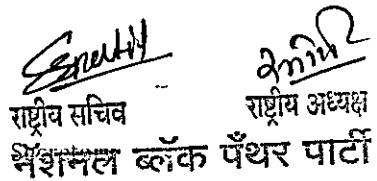 राष्ट्रीय सचिव राष्ट्रीय अध्यक्ष
नॅशनल ब्लॅक पँथर पार्टी